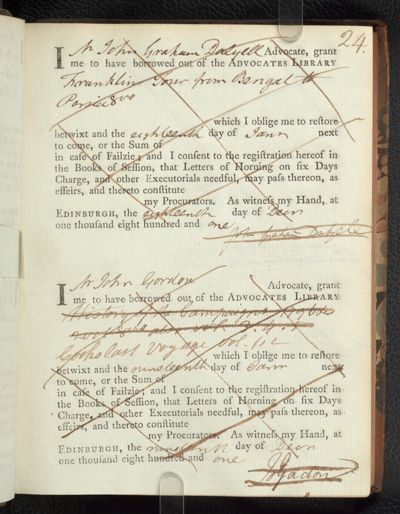 24.
I Mr John Graham Dalyell Advocate, grant
me to have borrowed out of the ADVOCATES LIBRARY
Franklin Tour from Bengal to
Persia 8vo
which I oblige me to restore
betwixt and the eighteenth day of Janr next
to come, or the Sum of
in case of Failzie; and I consent to the registration hereof in
the Books of Session, that Letters of Horning on six Days
Charge, and other Executorials needful, may pass thereon, as
effeirs, and thereto constitute
my Procurators. As witness my Hand, at
EDINBURGH, the eighteenth day of Decr
one thousand eight hundred and one
John Graham Dalyell
I Mr John Gordon Advocate, grant
me to have borrowed out of the ADVOCATES LIBRARY
History of the Campaigns 1796
vol. 2. 4.
Cooks last Voyage vol. 1 & 2
which I oblige me to restore
betwixt and the nineteenth day of Janr next
to come, or the Sum of
in case of Failzie; and I consent to the registration hereof in
the Books of Session, that Letters of Horning on six Days
Charge, and other Executorials needful, may pass thereon, as
effeirs, and thereto constitute
my Procurators. As witness my Hand, at
EDINBURGH, the nineteenth day of Decr
one thousand eight hundred and one